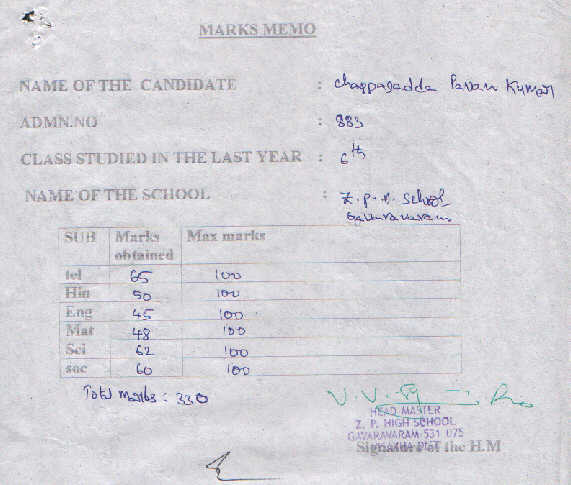 MARKS MEMO
NAME OF THE CANDIDATE : Chappagadda Pavan Kumar
ADMN.NO : 883
CLASS STUDIED IN THE LAST YEAR : 6th
NAME OF THE SCHOOL : Z.P.H. School
Gavaravaram
SUB Marks obtained Max marks
tel 65 100
Hin 50 100
Eng 45 100
Mat 48 100
Sci 62 100
soc 60 100
Total marks : 330
HEAD MASTER
Z. P. HIGH SCHOOL
GAVARAVARAM-531 075
VISAKHA DIST
Signature of the H.M